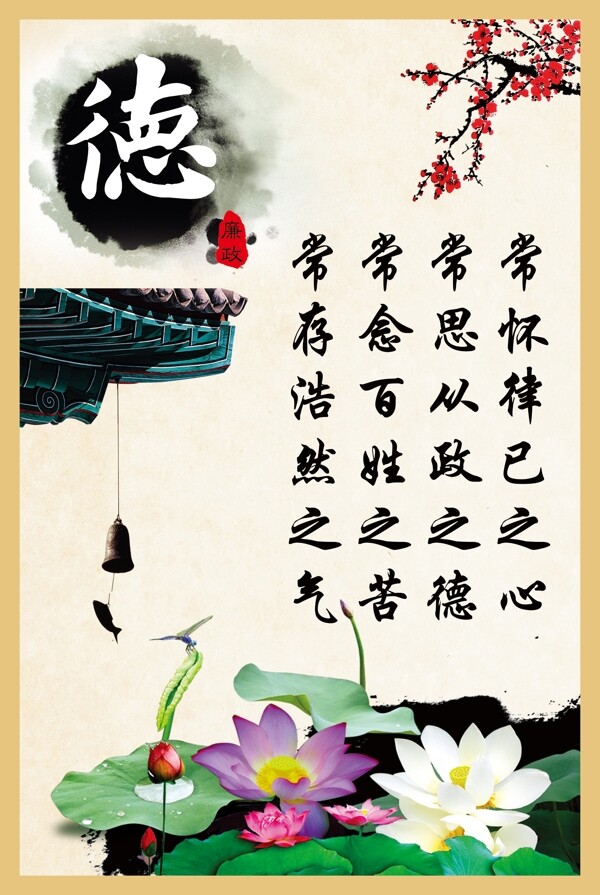 德
廉政
常怀律已之心
常思从政之德
常念百姓之苦
常存浩然之气